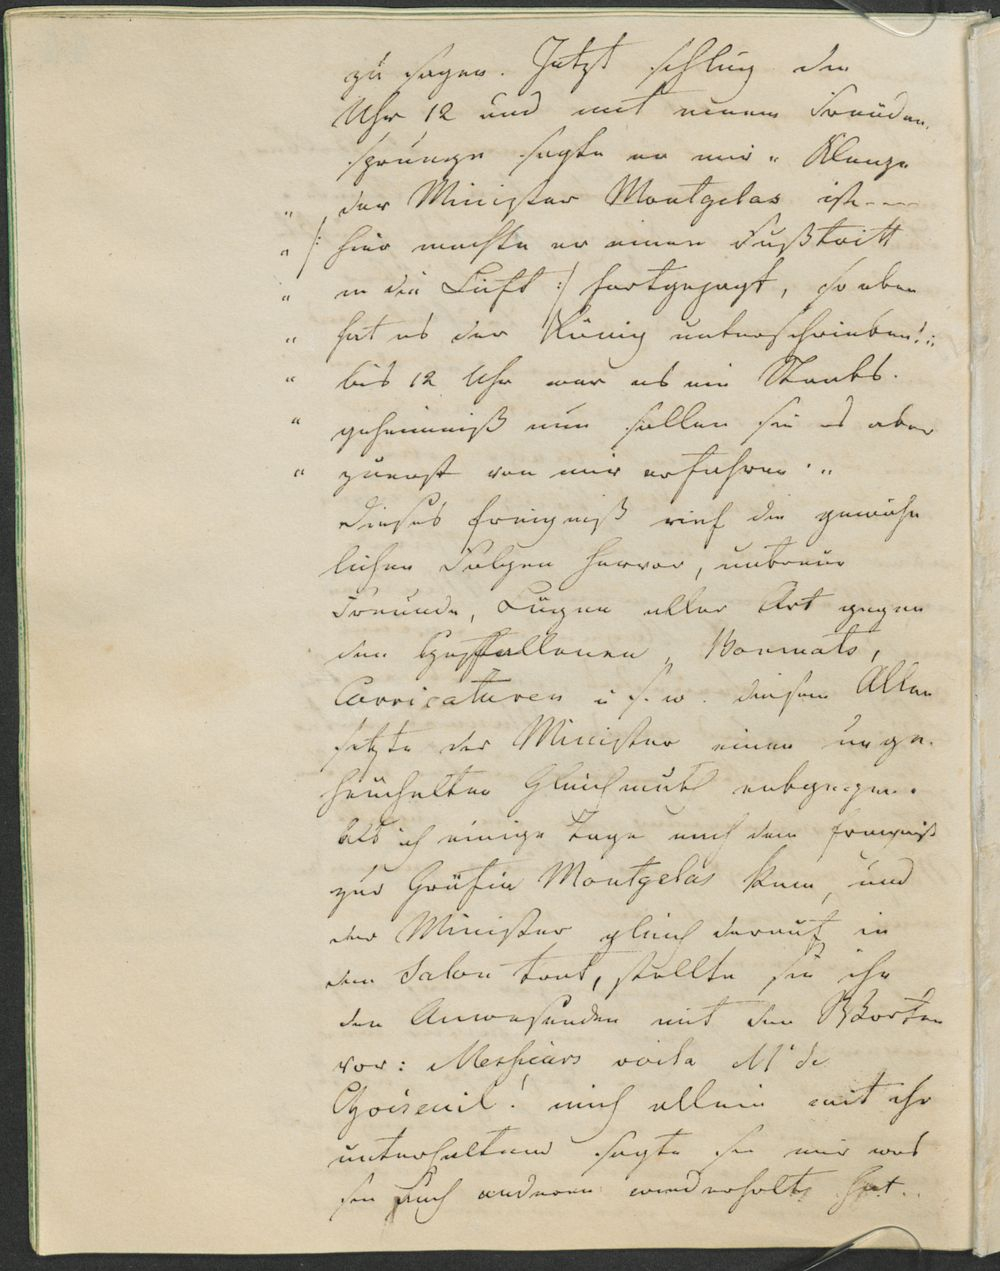 zu sagen. Jetzt schlug die
Uhr 12 und mit einem Freuden-
sprunge sagte er mir „ Klenze
„ der Minister Montgelas ist----
„ /: hier machte er einen Fußtritt
„ in die Luft :/ fortgejagt, so eben
„ hat es der König unterschrieben!;
„ bis 12 Uhr war es ein Staats-
„ geheimniß nun sollen sie es aber
„ zuerst von mir erfahren. „
Dieses Ereigniß rief die gewöhn
lichen Folgen hervor, untreue
Freunde, Lügen aller Art gegen
den Gefallenen, Bonmots,
Carricaturen u. s. w. diesem Allen
setzte der Minister einen unge-
heuchelten Gleichmuth entgegen.
Als ich einige Tage nach dem Ereigniß
zur Gräfin Montgelas kam, und
der Minister gleich darauf in
den Salon trat, stellte sie ihn
den Anwesenden mit den Worten
vor: Messieurs voila Mr de
Choiseuil! mich allein mit ihr
unterhaltend sagte sie mir was
sie auch anderen wiederholt hat.